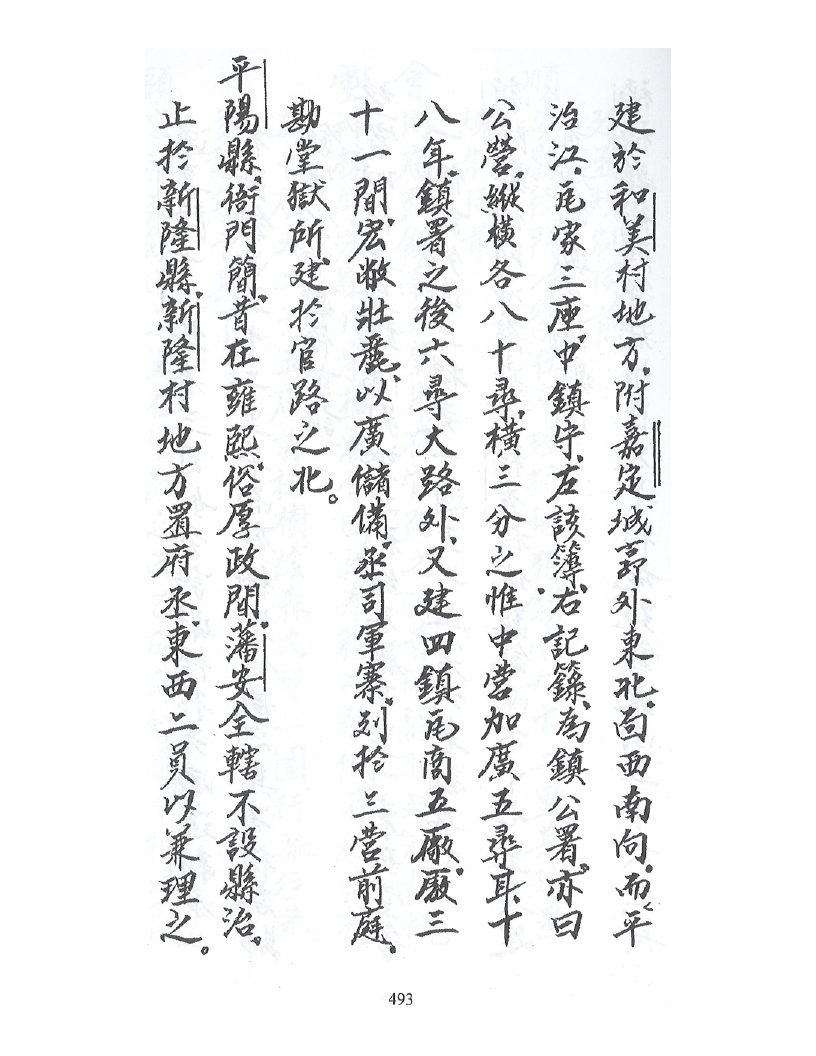 建於和美村地方、附嘉定城郭外東北、面西南向、而平
治江、瓦家三座、中鎮守、左該簿、右記籙、為鎮公署、亦曰
公營、縱橫各八十尋、橫三分之惟中營加廣五尋耳、十
八年、鎮署之後六尋大路外、又建四鎮瓦商五厫、厫三
十一間、宏敞壯麗、以廣儲備、丞司軍寨、列於三營前庭、
勘堂獄所、建於官路之北。
平陽縣、衙門簡、昔在雍熙、俗厚政閒、藩安全轄不設縣治、
止於新隆縣、新隆村地方置府丞、東西二員以兼理之。
493